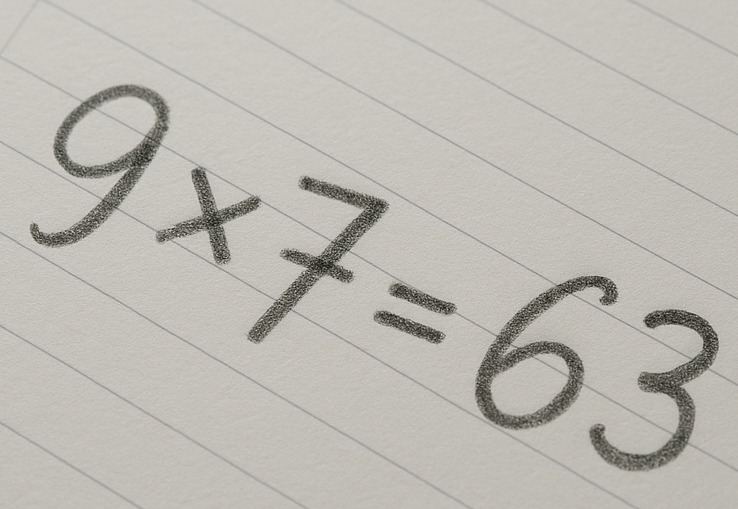 9×7=63